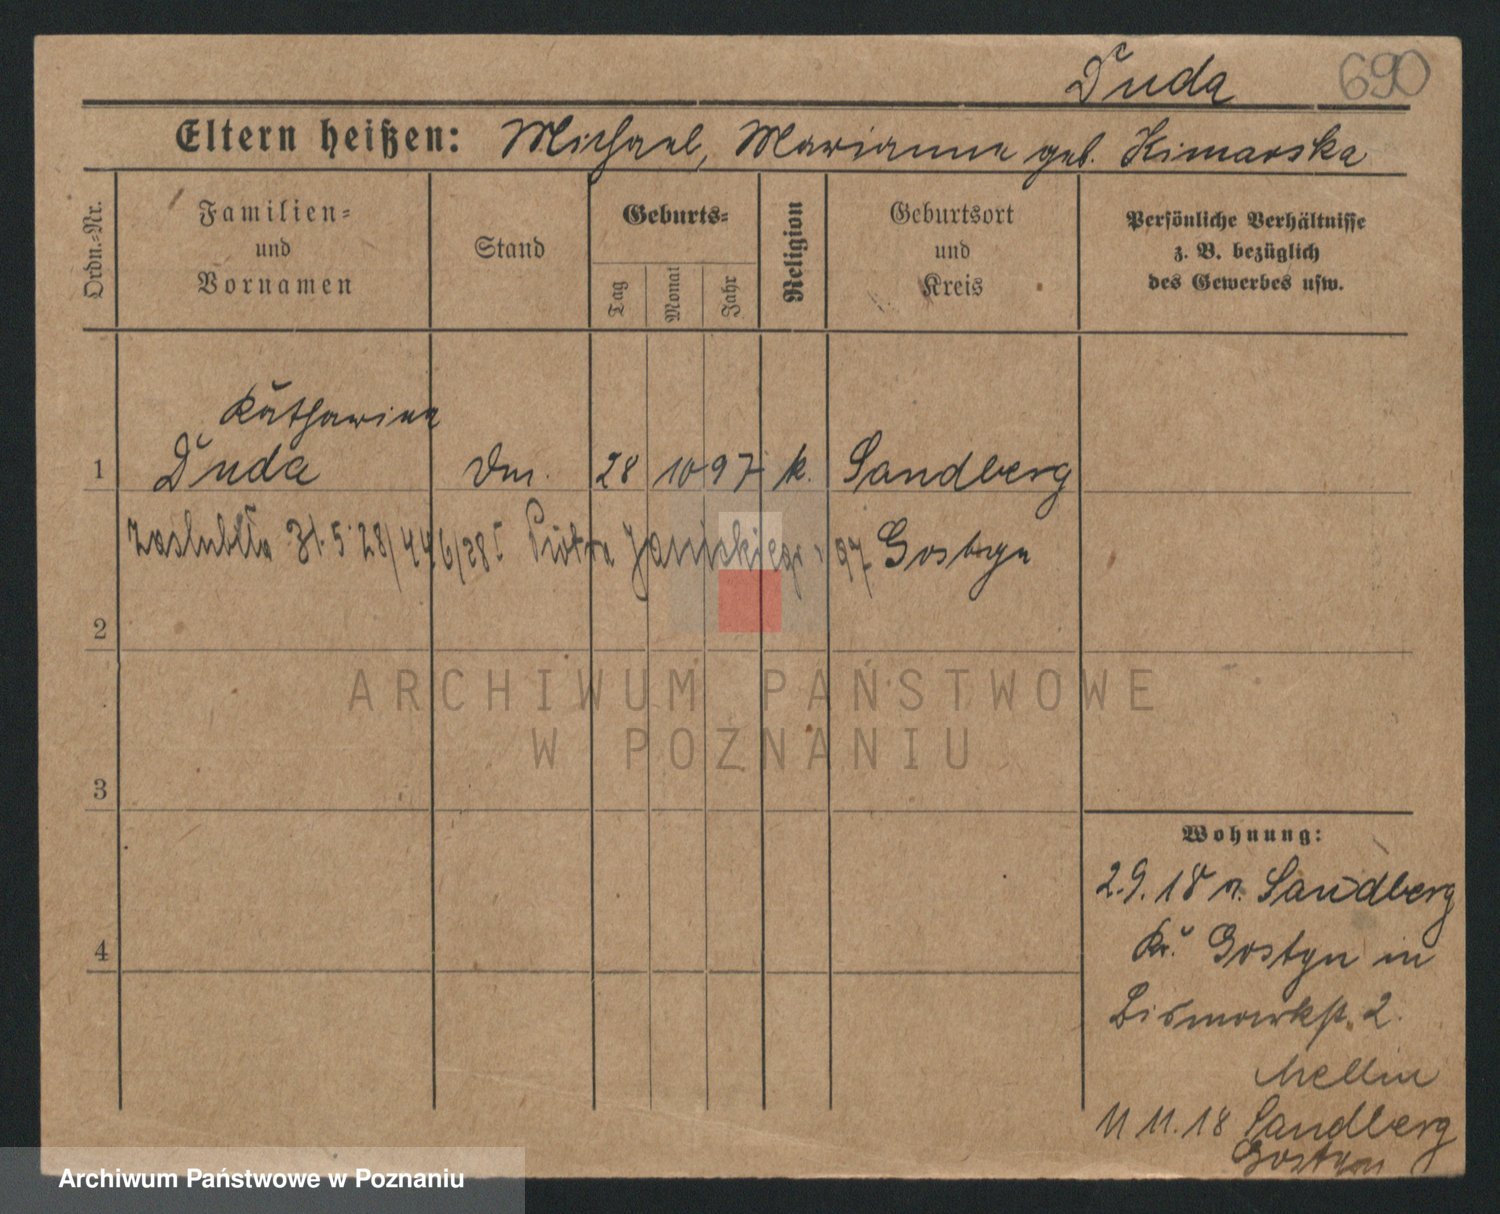 Duda 690
Eltern heißen: Michael, Marianne geb. Kimarska
Ordn.-Nr.
Familien-
und
Vornamen
Stand
Geburts-
Tag
Monat
Jahr
Religion
Geburtsort
und
Kreis
Persönliche Verhältnisse
z. B. bezüglich
des Gewerbes usw.
Katharina
1 Duda Dm. 28 10 97 k. Sandberg
31.5.28/446/28 Piotra 97 Gostyn
2
3
4
Wohnung:
2.9.18 v. Sandberg
Kr. Gostyn in
Bismarkst. 2.
Mellin
11 11.18 Sandberg
Gostyn
ARCHIWUM PAŃSTWOWE
W POZNANIU
Archiwum Państwowe w Poznaniu